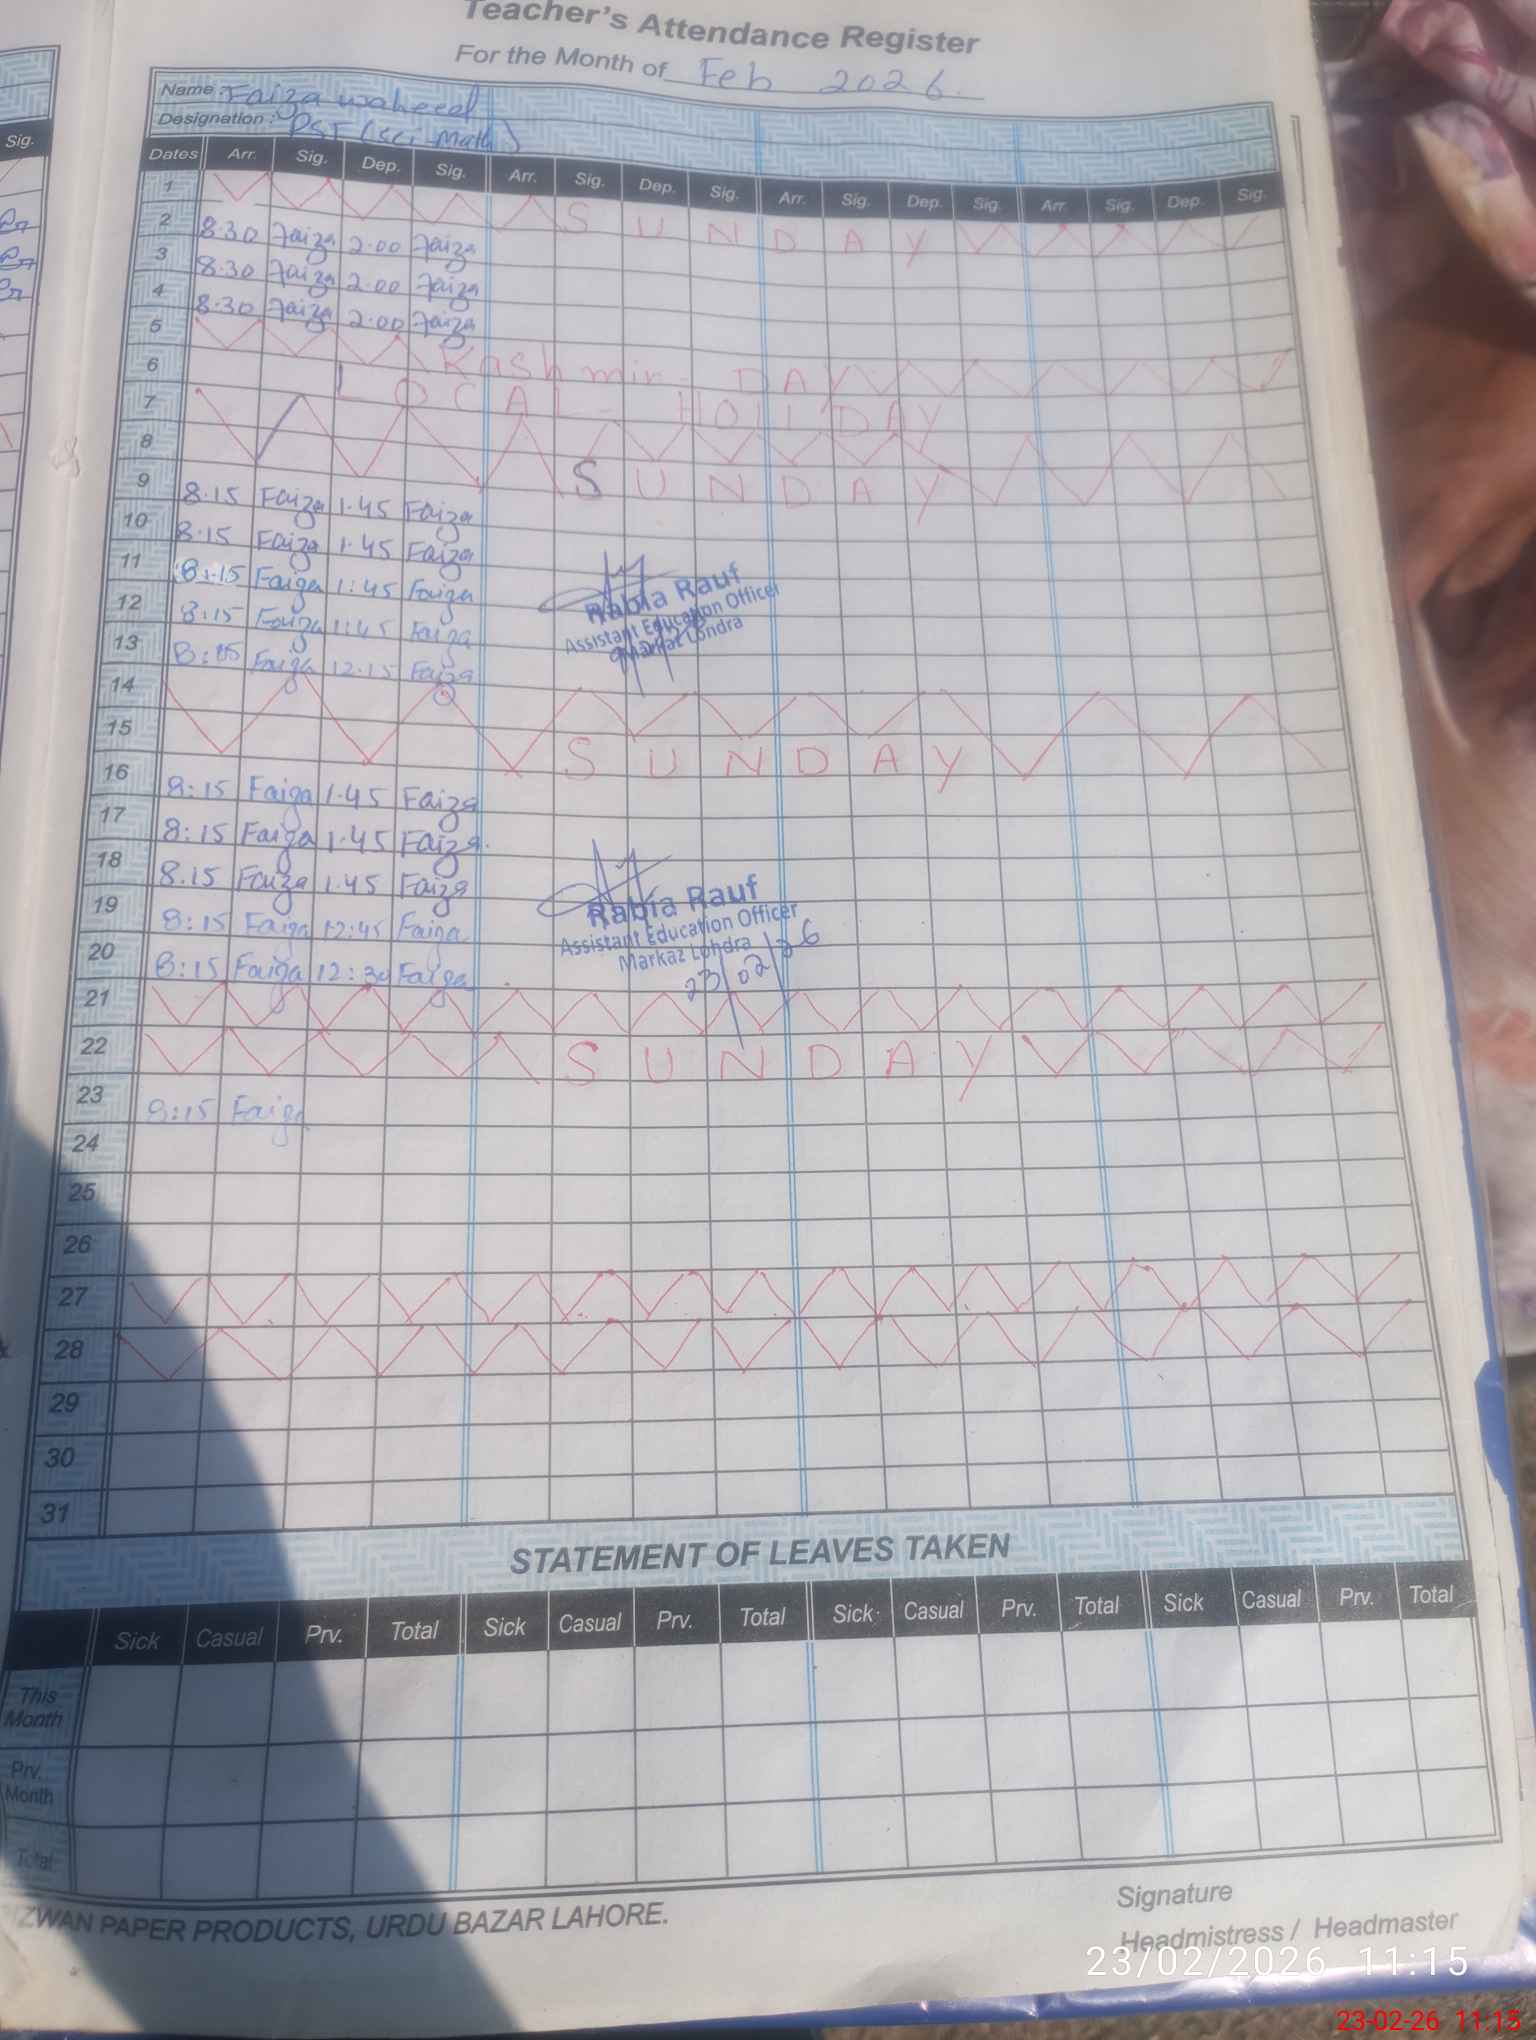 Teacher's Attendance Register
For the Month of Feb 2026.
Name : Faiza waheed
Designation : PST (Sci-Math)
Sig.
Dates Arr. Sig. Dep. Sig. Arr. Sig. Dep. Sig. Arr. Sig. Dep. Sig. Arr. Sig. Dep. Sig.
1 SUNDAY
2 8.30 Faiza 2.00 Faiza
3 8.30 Faiza 2.00 Faiza
4 8.30 Faiza 2.00 Faiza
5 Kashmir - DAY
6 LOCAL - HOLIDAY
7
8 SUNDAY
9 8.15 Faiza 1.45 Faiza
10 8.15 Faiza 1.45 Faiza
11 8:15 Faiza 1:45 Faiza
12 8:15 Faiza 1:45 Faiza
13 Faiza 12.15 Faiza
Rabia Rauf
Assistant Education Officer
Markaz Londra
14
15 SUNDAY
16 8:15 Faiza 1.45 Faiza
17 8:15 Faiza 1.45 Faiza.
18 8.15 Faiza 1.45 Faiza
19 8:15 Faiza 12:45 Faiza
20 8:15 Faiza 12:30 Faiza
Rabia Rauf
Assistant Education Officer
Markaz Londra
23/02/26
21
22 SUNDAY
23 8:15 Faiza
24
25
26
27
28
29
30
31
STATEMENT OF LEAVES TAKEN
Sick Casual Prv. Total Sick Casual Prv. Total Sick Casual Prv. Total Sick Casual Prv. Total
This Month
Prv. Month
Total
IZWAN PAPER PRODUCTS, URDU BAZAR LAHORE.
Signature
Headmistress / Headmaster
23/02/2026 11:15
23-02-26 11:15